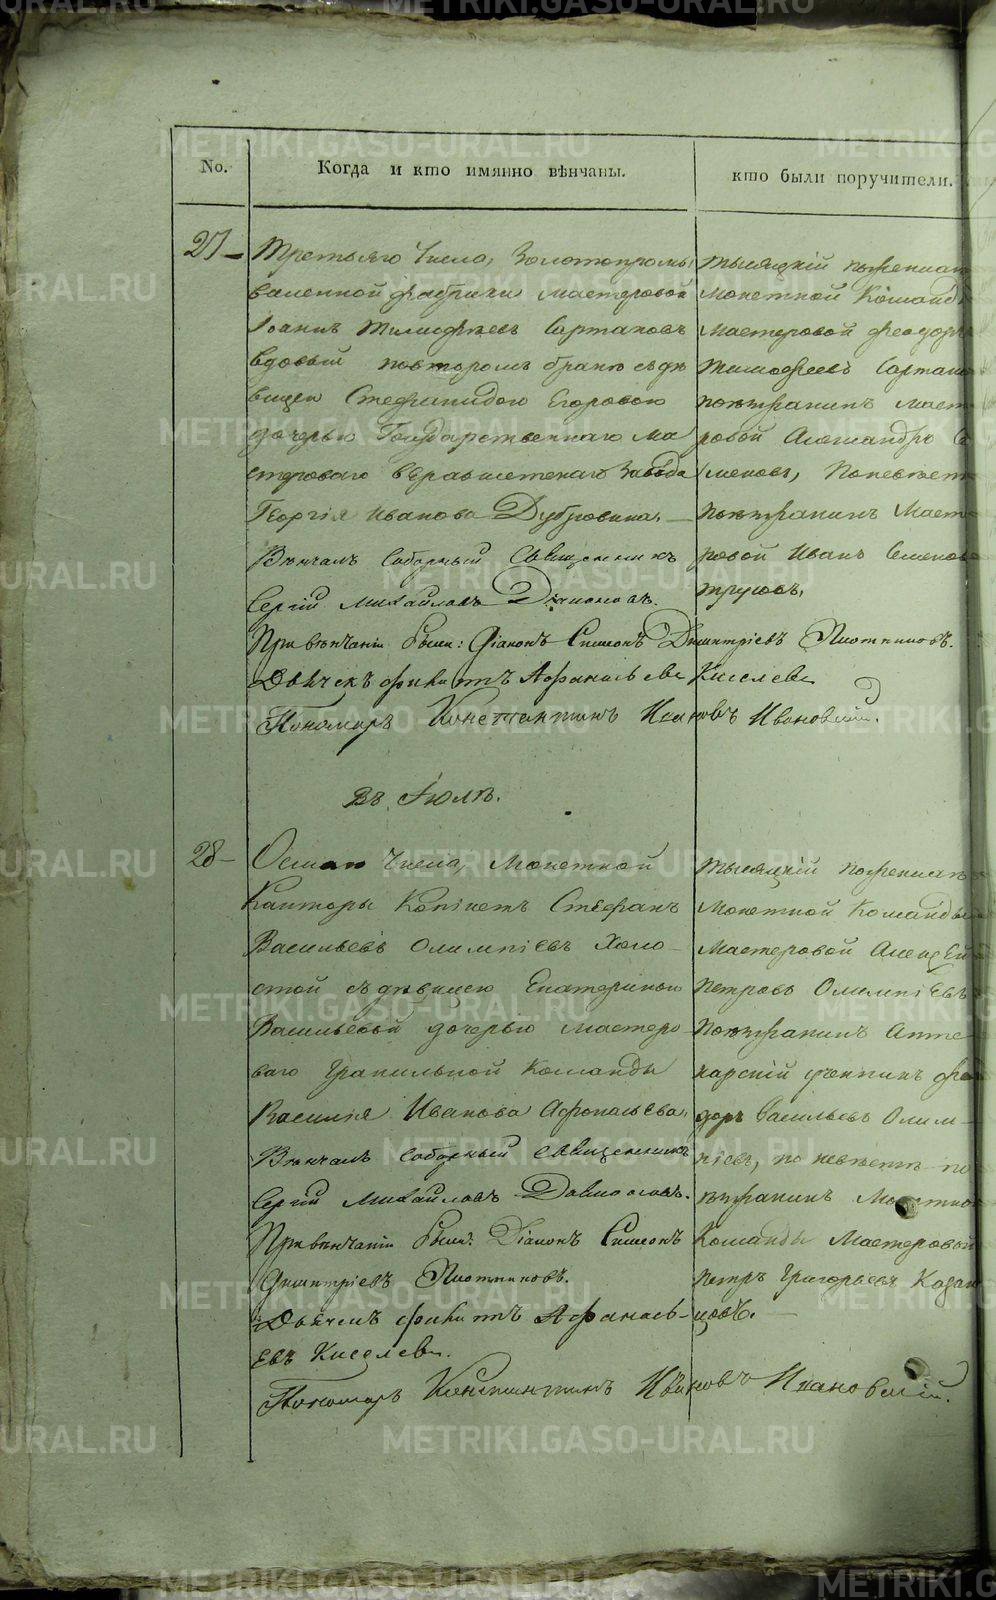 No.
Когда и кто имянно вѣнчаны.
кто были поручители.
27
Третьяго Числа, Золотопромы
валенной фабрики мастеровой
Іоаннъ Тимофеевъ Сартаковъ
вдовый повторомъ браке съ дѣ
вицею Стефанидою Егоровою
дочерью Государственнаго Ма
стероваго вѣрхъисетскаго Завода
Георгія Иванова Дубровина,
Вѣнчалъ Соборный Священникъ
Сергій Михайловъ
При вѣнчаніи были: Діаконъ Симеонъ Дмитріевъ Плотниковъ.
Дьячекъ Фикитъ Афанасьевъ Киселевъ
Пономарь Константинъ Ивановъ Ивановскій.
тысяцкій
Монетной Команды
Мастеровой Феодоръ
Тимофеевъ
поѣзжанинъ маст
ровой Александръ
меновъ, Поневѣсте
поѣзжанинъ Масте
ровой Иванъ Семенов
Въ Іюлѣ.
28
Осмаго Числа, Монетной
Канторы Копіистъ Стефанъ
Васильевъ Олимпіевъ Холо
стой съ дѣвицею Екатериною
Васильевой дочерью мастеро
ваго Гранильной Команды
Василія Иванова Афонасьева,
Вѣнчалъ Соборный Священникъ
Сергій Михайловъ
При вѣнчаніи были: Діаконъ Симеонъ
Дмитріевъ Плотниковъ.
Дьячекъ Фикитъ Афанась-
евъ Киселевъ.
Пономарь Константинъ Ивановъ Ивановскій.
тысяцкій
Монетной Команды
Мастеровой Алексѣй
Петровъ Олимпіевъ
Поѣзжанинъ Апте
карскій ученикъ Фе
доръ Васильевъ Олим-
піевъ, по невѣстѣ по
ѣзжанинъ Монетной
Команды Мастеровой
Петръ Григорьевъ Казан
цовъ.
METRIKI.GASO-URAL.RU